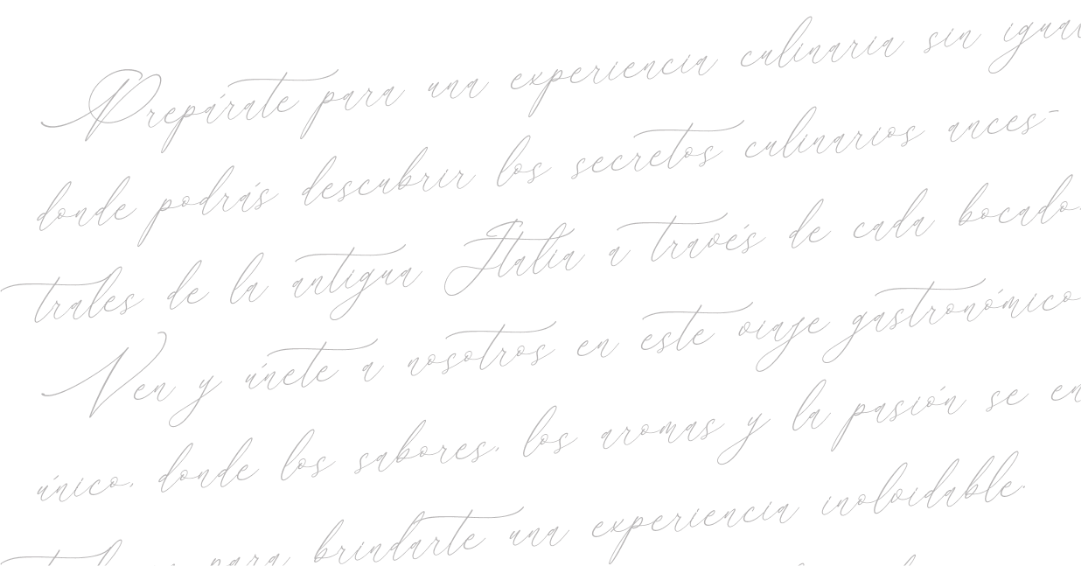 Prepárate para una experiencia culinaria sin igual
donde podrás descubrir los secretos culinarios ances-
trales de la antigua Italia a través de cada bocado.
Ven y únete a nosotros en este viaje gastronómico
único, donde los sabores, los aromas y la pasión se en
para brindarte una experiencia inolvidable.